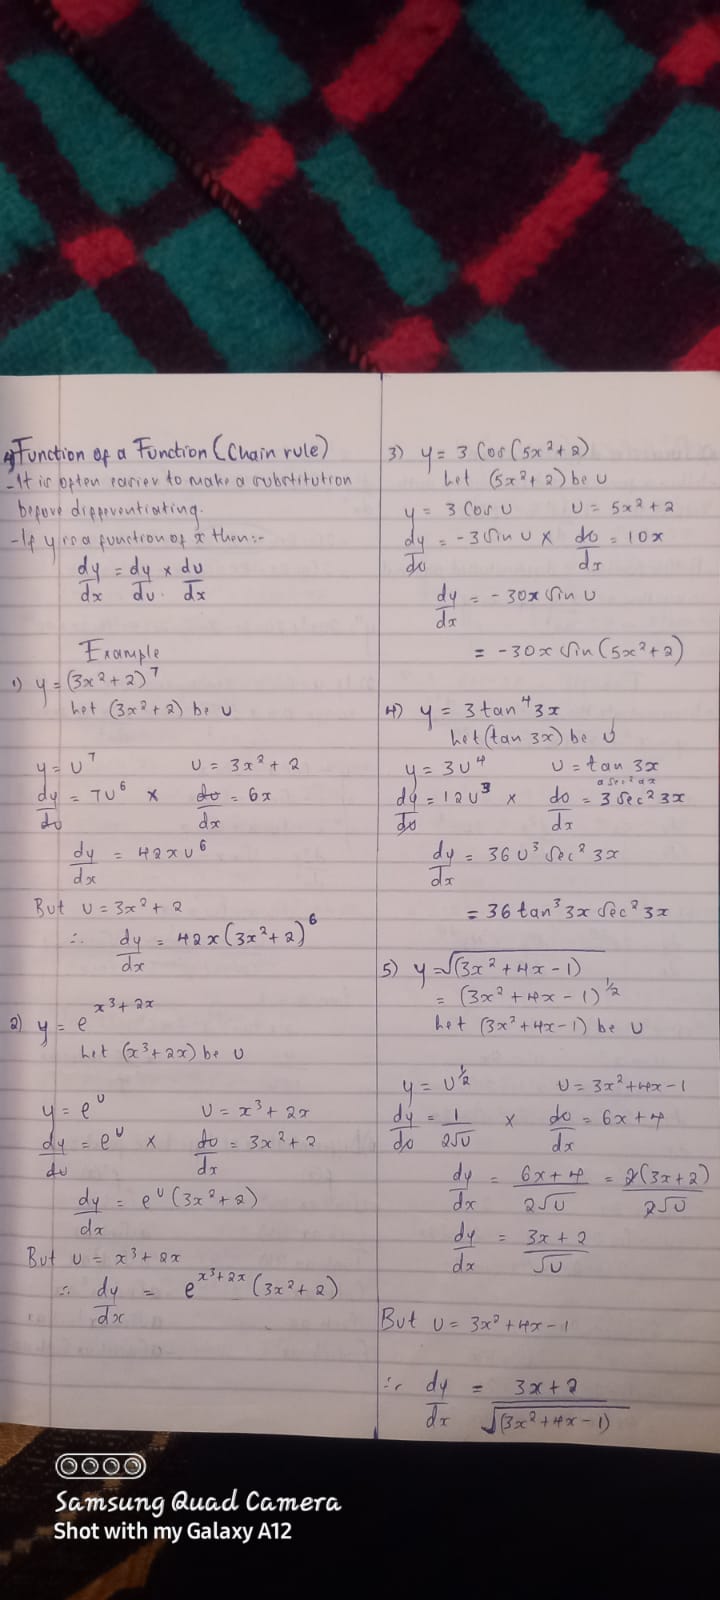 4) Function of a Function (Chain rule)
- It is often easier to make a substitution
before differentiating.
- If y is a function of x then:-
dy/dx = dy/du × du/dx
Example
1) y = (3x² + 2)⁷
Let (3x² + 2) be u
y = u⁷   u = 3x² + 2
dy/du = 7u⁶ × du/dx = 6x
dy/dx = 42xu⁶
But u = 3x² + 2
∴ dy/dx = 42x(3x² + 2)⁶
2) y = e^(x³ + 2x)
Let (x³ + 2x) be u
y = e^u   u = x³ + 2x
dy/du = e^u × du/dx = 3x² + 2
dy/dx = e^u (3x² + 2)
But u = x³ + 2x
∴ dy/dx = e^(x³ + 2x) (3x² + 2)
3) y = 3 Cos (5x² + 2)
Let (5x² + 2) be u
y = 3 Cos u   u = 5x² + 2
dy/du = -3 Sin u × du/dx = 10x
dy/dx = -30x Sin u
= -30x Sin (5x² + 2)
4) y = 3 tan⁴ 3x
Let (tan 3x) be u
y = 3u⁴   u = tan 3x
a Sec² ax
dy/du = 12u³ × du/dx = 3 Sec² 3x
dy/dx = 36 u³ Sec² 3x
= 36 tan³ 3x Sec² 3x
5) y = √(3x² + 4x - 1)
= (3x² + 4x - 1)^½
Let (3x² + 4x - 1) be u
y = u^½   u = 3x² + 4x - 1
dy/du = 1/2√u × du/dx = 6x + 4
dy/dx = 6x + 4/2√u = 2(3x + 2)/2√u
dy/dx = 3x + 2/√u
But u = 3x² + 4x - 1
∴ dy/dx = 3x + 2/√(3x² + 4x - 1)
Samsung Quad Camera
Shot with my Galaxy A12